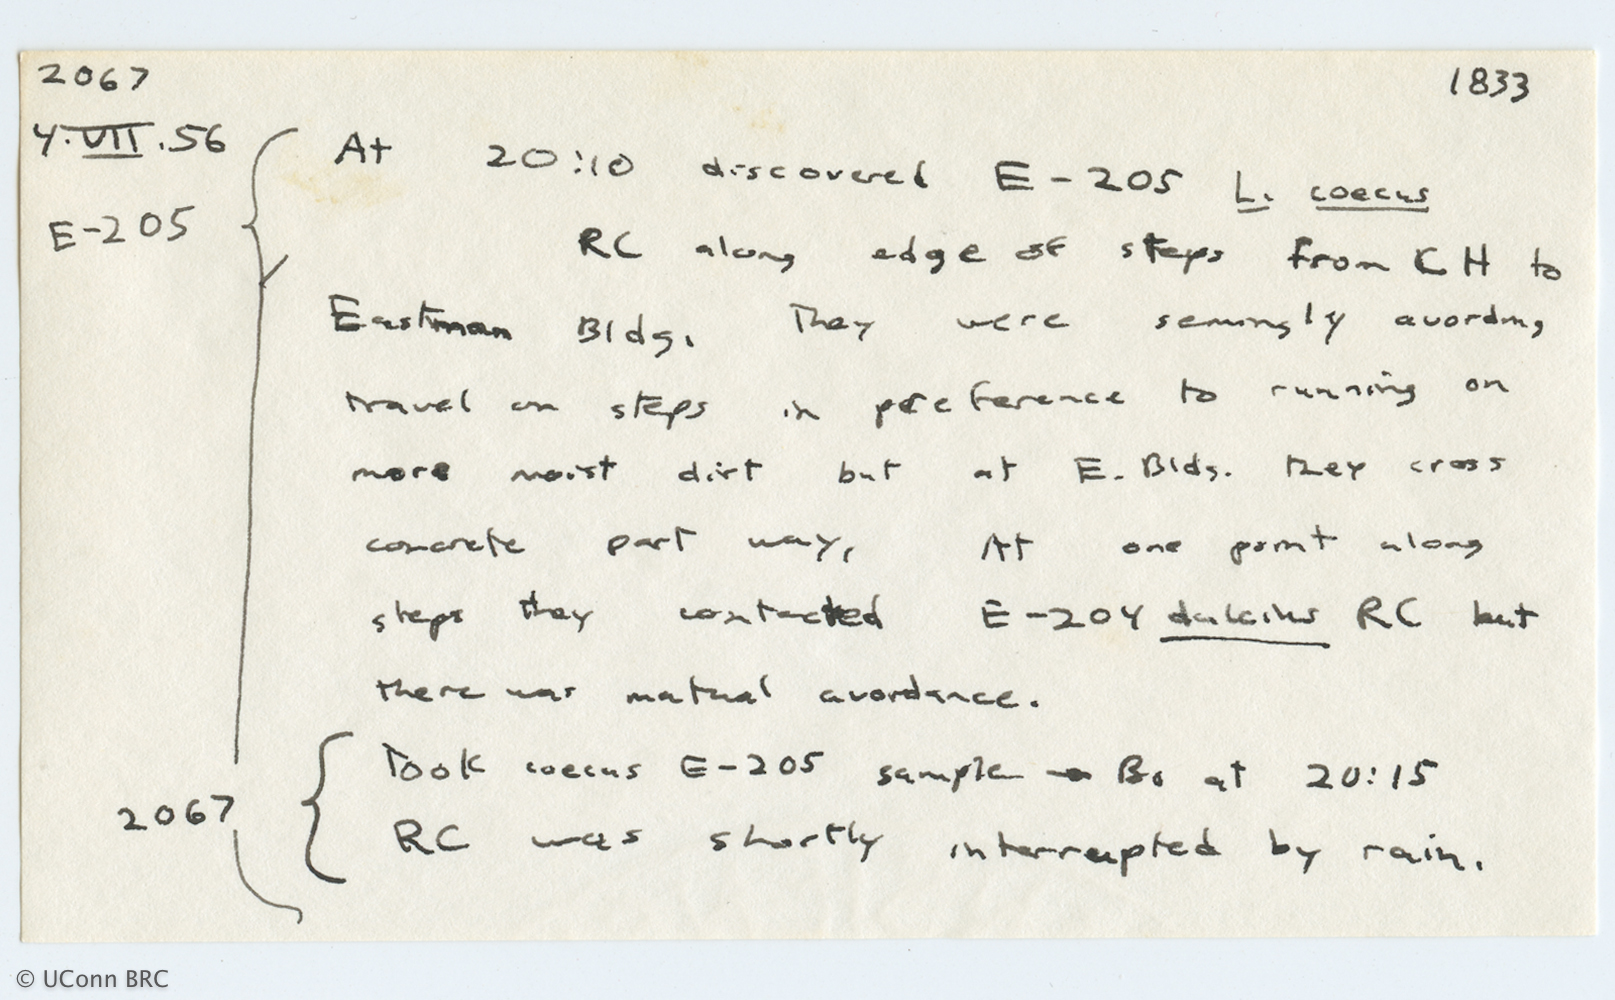 2067 1833
4.VII.56 At 20:10 discovered E-205 L. coecus
E-205 RC along edge of steps from KH to
Eastman Bldg. They were semingly avoiding
travel on steps in preference to running on
more moist dirt but at E. Bldg. they cross
concrete part way. At one point along
steps they contacted E-204 dulcius RC but
there was mutual avoidance.
Took coecus E-205 sample → Bo at 20:15
2067 RC was shortly interrupted by rain.
© UConn BRC